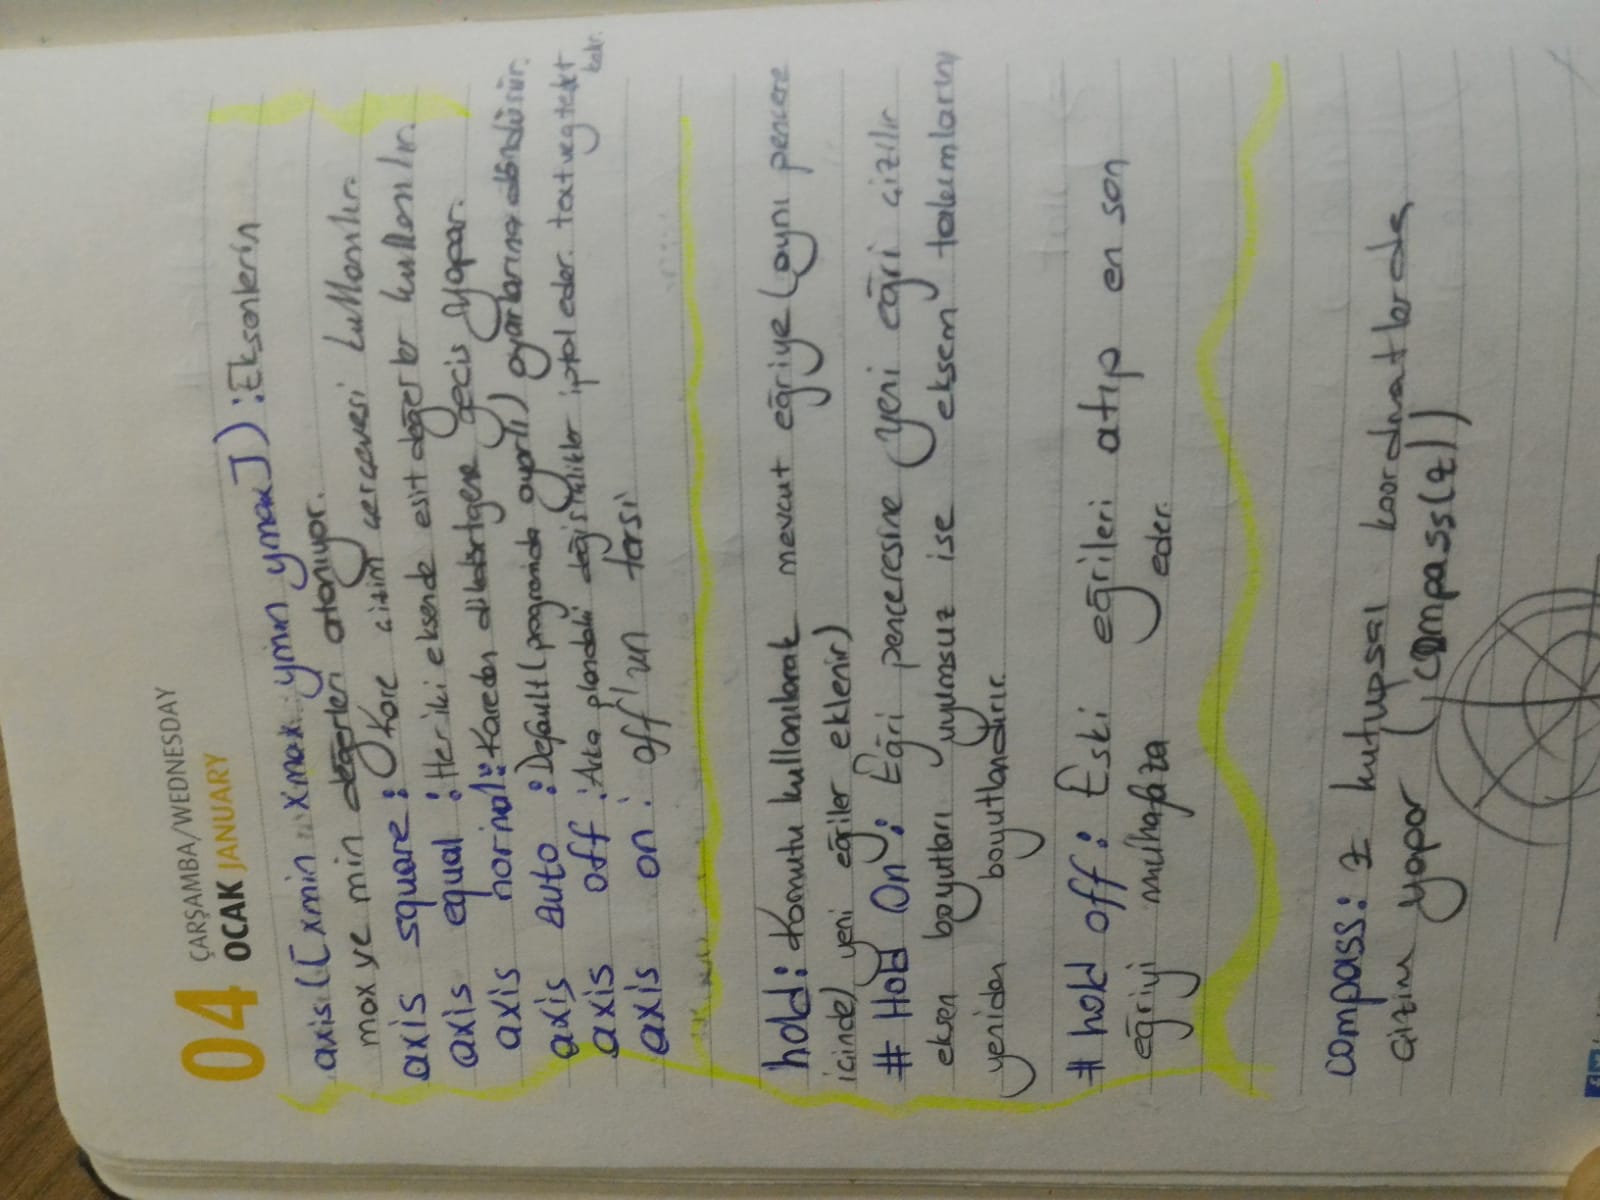 04
ÇARŞAMBA/WEDNESDAY
OCAK JANUARY
axis([xmin xmax ymin ymax]) : Eksenlerin
max ve min değerleri atanıyor.
axis square : Kare çizim çerçevesi kullanılır.
axis equal : Her iki eksende eşit değerler kullanılır.
axis normal : Kareden dikdörtgene geçiş yapar.
axis auto : Default (programda ayarlı) ayarlarına döndürür.
axis off : Arka plandaki değişiklikler iptal eder. text vegtext
kalır.
axis on : off'un tersi
hold : Komutu kullanılarak mevcut eğriye (aynı pencere
içinde) yeni eğriler eklenir)
# Hold On : Eğri penceresine yeni eğri çizilir
eksen boyutları uyumsuz ise eksem takımlarını
yeniden boyutlandırır.
# hold off : Eski eğrileri atıp en son
eğriyi mulhafaza eder.
compass : z kutupsal koordinatlarda
çizim yapar (compass(z))